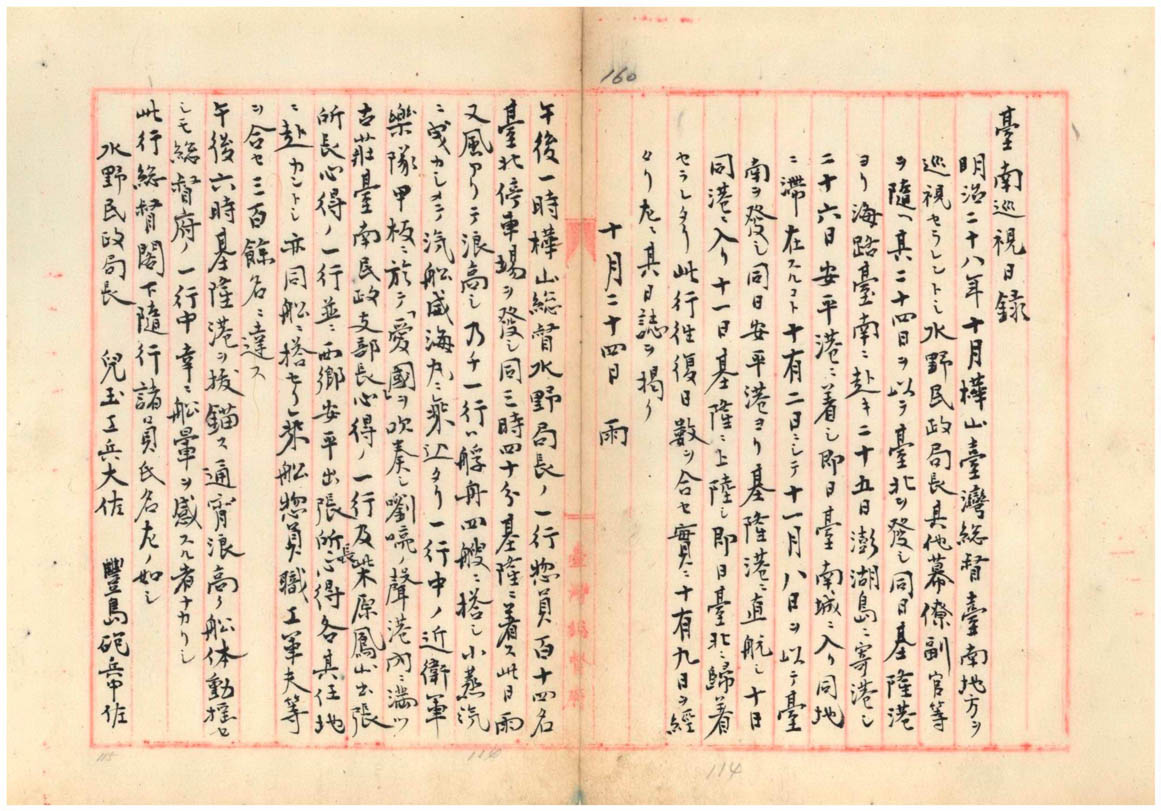 160
臺南巡視日録
明治二十八年十月樺山臺灣総督臺南地方ヲ
巡視セラレントシ水野民政局長其他幕僚副官等
ヲ隨ヘ其二十四日ヲ以テ臺北ヲ發シ同日基隆港
ヨリ海路臺南ニ赴キ二十五日澎湖島ニ寄港シ
二十六日安平港ニ着シ即日臺南城ニ入リ同地
ニ滞在スルコト十有二日ニシテ十一月八日ヲ以テ臺
南ヲ發シ同日安平港ヨリ基隆港ニ直航シ十日
同港ニ入リ十一日基隆ニ上陸シ即日臺北ニ歸着
セラレタリ此行往復日数ヲ合セ實ニ十有九日ヲ經
タリ左ニ其日誌ヲ掲ク
十月二十四日 雨
午後一時樺山総督水野局長ノ一行惣員百十四名
臺北停車場ヲ發シ同三時四十分基隆ニ着ス此日雨
又風アリテ浪高シ乃チ一行ハ艀舟四艘ニ搭シ小蒸汽
ニ曳カシメテ汽船威海丸ニ乗込タリ一行中ノ近衛軍
樂隊甲板ニ於テ「愛國」ヲ吹奏シ嚠喨ノ聲港内ニ満ツ
古莊臺南民政支部長心得ノ一行及柴原鳳山出張
所長心得ノ一行並ニ西郷安平出張所長心得各其任地
ニ赴カントシ亦同船ニ搭セリ乗船惣員職工軍夫等
ヲ合セ三百餘名ニ達ス
午後六時基隆港ヲ抜錨ス通宵浪高ク船体動揺セ
シモ総督府ノ一行中幸ニ船暈ヲ感スル者ナカリシ
此行総督閣下隨行諸員氏名左ノ如シ
水野民政局長 兒玉工兵大佐 豐島砲兵中佐
臺灣総督府
114
114
115